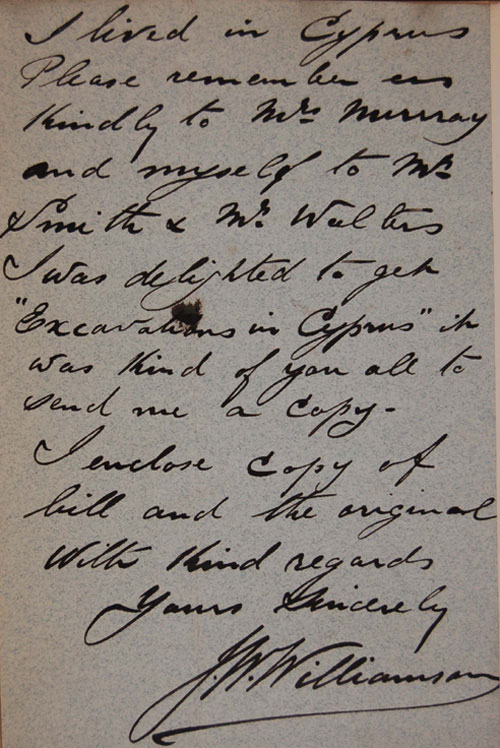 I lived in Cyprus
Please remember us
kindly to Mrs Murray
and myself to Mr
Smith & Mr Walters
I was delighted to get
"Excavations in Cyprus" it
was kind of you all to
send me a copy-
I enclose copy of
bill and the original
With kind regards
Yours Sincerely
J.W. Williamson